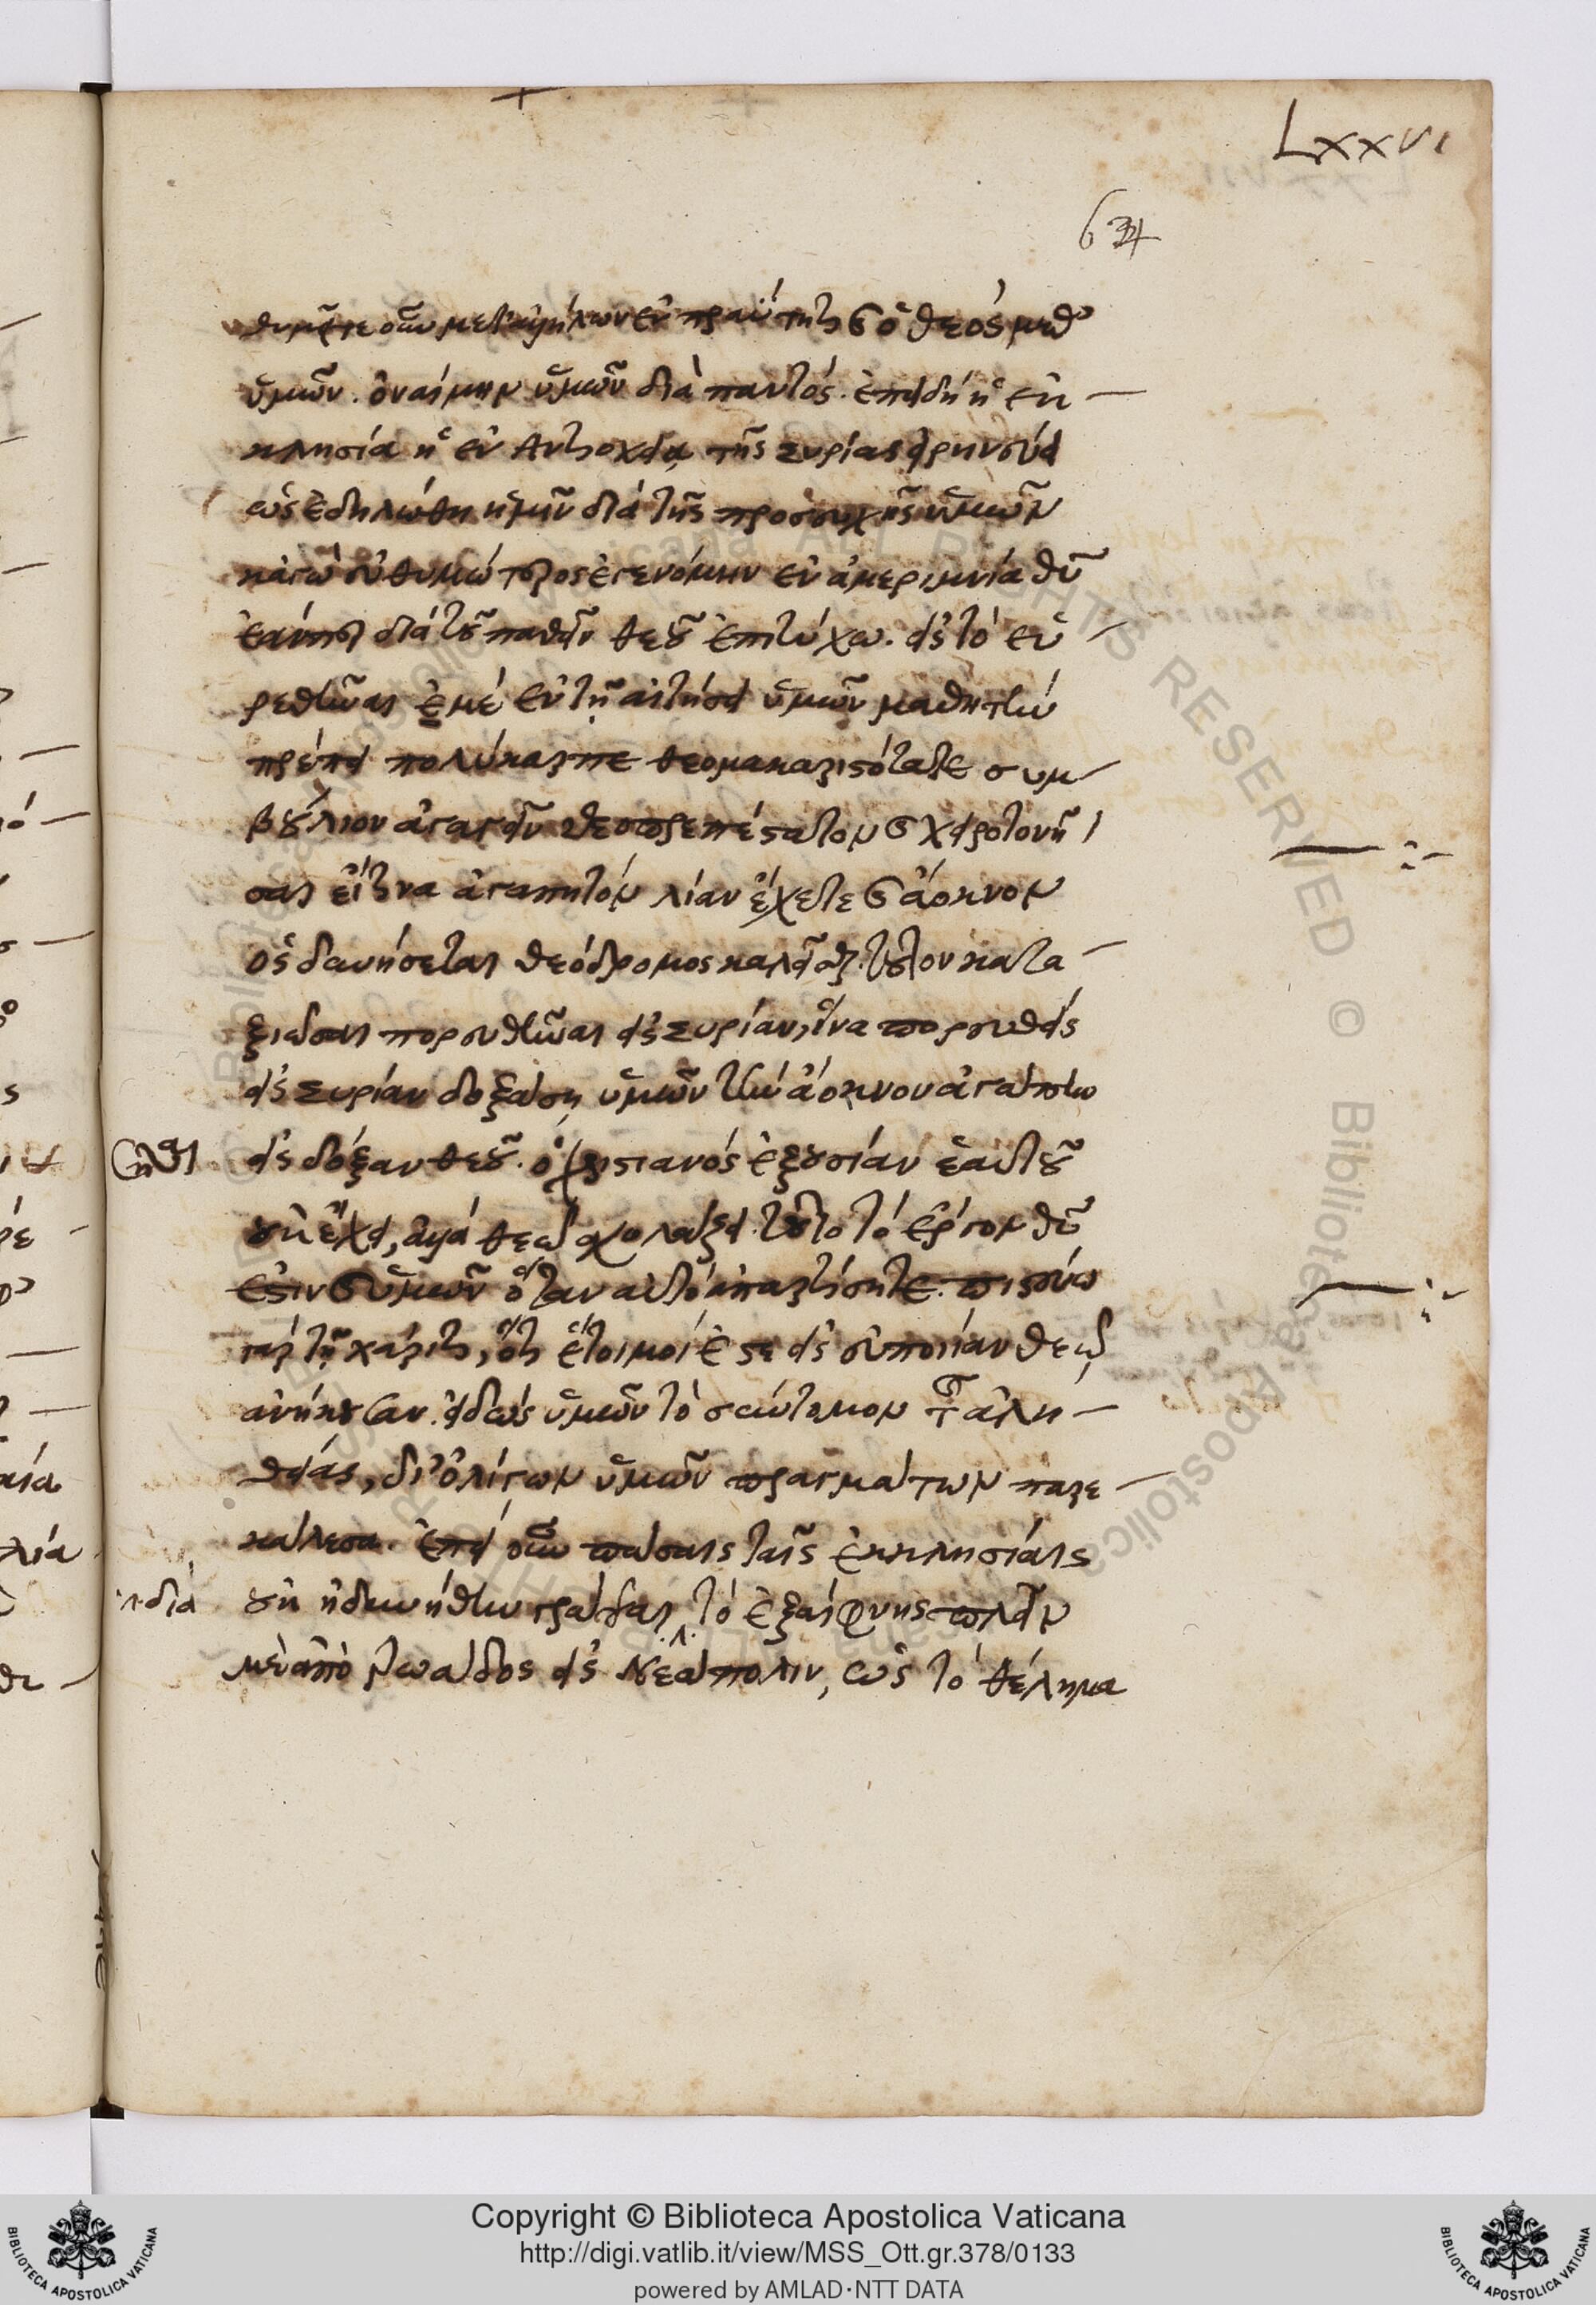 LXXVI
63
θυμεῖτε οὖν μετ' ἀλλήλων ἐν πραΰτητι ϗ ὁ θεός μεθ'
ὑμῶν. ὀναίμην ὑμῶν διὰ παντός. ἐπειδή ἡ ἐκ –
κλησία ἡ ἐν Ἀντιοχείᾳ τῆς Συρίας εἰρηνεύει
ὡς ἐδηλώθη ἡμῖν διὰ τῆς προσευχῆς ὑμῶν
κἀγὼ εὐθυμώτερος ἐγενόμην ἐν ἀμεριμνία θῦ
ἐάνπερ διὰ τοῦ παθεῖν θεοῦ ἐπιτύχω. εἰς τὸ εὑ –
ρεθῆναι ἐμέ ἐν τῇ αἰτήσει ὑμῶν μαθητήν
πρέπει πολύκαρπε θεομακαριστότατε συμ –
βούλιον ἀγαγεῖν θεοπρεπέστατον ϗ χειροτονῆ
σαι εἴ τινα ἀγαπητόν λίαν ἔχετε ϗ ἄοκνον
ὅς δυνήσεται θεόδρομος καλεῖσθαι. τοῦτον κατα –
ξιῶσαι πορευθῆναι εἰς Συρίαν, ἵνα πορευθείς
εἰς Συρίαν δοξάσῃ ὑμῶν τὴν ἄοκνον ἀγάπην
εἰς δόξαν θεοῦ. ὁ χριστιανός ἐξουσίαν ἑαυτοῦ
οὐκ ἔχει, ἀλλά θεῷ σχολάζει. τοῦτο τὸ ἔργον θῦ
ἐστιν ϗ ὑμῶν ὅταν αὐτό ἀπαρτίσητε. πιστεύω
γάρ τῇ χάριτι, ὅτι ἕτοιμοί ἐστε εἰς εὐποιίαν θεῷ
ἀνήκουσαν. εἰδώς ὑμῶν τὸ σύντομον τῆς ἀλη –
θείας, δι' ὀλίγων ὑμῶν γραμμάτων παρε –
κάλεσα. ἐπεί οὖν πάσαις ταῖς ἐκκλησίαις
διὰ
οὐκ ἠδυνήθην γράψαι, τό ἐξαίφνης πλεῖν
με ἀπὸ Τρωάδος εἰς Νεάπολιν, ὡς τό θέλημα
Copyright © Biblioteca Apostolica Vaticana
http://digi.vatlib.it/view/MSS_Ott.gr.378/0133
powered by AMLAD·NTT DATA
BIBLIOTECA APOSTOLICA VATICANA
BIBLIOTECA APOSTOLICA VATICANA